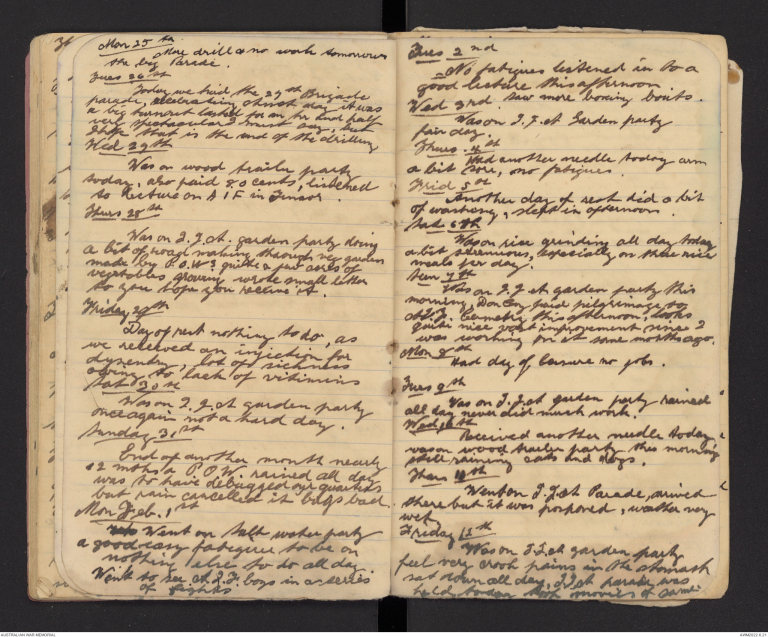 Mon 25th
More drill & no work tomorrow
the big Parade.
Tues 26th
Today we had the 27th Brigade
parade, celebrating Aust day it was
a big turnout lasted for an hr and half
very spectacular I must say, but
I hope that is the end of the drilling
Wed 27th
Was on wood trailer party
today, also paid 80 cents, listened
to lecture on A I F in
Thurs 28th
Was on I.J.A. garden party doing
a bit of road making through veg garden
made by P.O.W's quite a few acres of
vegetables growing wrote small letter
to you hope you receive it.
Friday 29th
Day of rest nothing to do, as
we received an injection for
dysentry a lot of sickness
owing to lack of vitimins
Sat 30th
Was on I.J.A garden party
once again not a hard day.
Sunday 31st
End of another month nearly
12 mths a P.O.W. rained all day
was to have debugged our quarters
but rain cancelled it bugs bad.
Mon Feb. 1st
Went on Salt water party
a good easy fatigue to be on
nothing else to do all day.
Went to see A.I.F. boys in a series
of fights
Tues 2nd
No fatigues listened in to a
good lecture this afternoon.
Wed 3rd. Saw more boxing bouts.
Was on I.J.A Garden party
fair day.
Thurs. 4th
Had another needle today arm
a bit sore, no fatigues.
Frid 5th
Another day of rest did a bit
of washing, slept in afternoon.
Sat 6th
Was on rice grinding all day today
a bit strenuous, especially on three rice
meals per day.
Sun 7th
Was on I.J.A garden party this
morning, Don Coy paid pilgrimage to
A.I.F. Cemetry this afternoon, looks
quite nice vast improvement since I
was working on it some months ago.
Mon 8th
Had day of leisure no jobs.
Tues 9th
Was on I.J.A garden party rained
all day never did much work.
Wed 10th
Received another needle today
was on wood trailer party this morning
still raining cats and dogs.
Thurs 11th
Went on I.J.A Parade, arived
there but it was postponed, weather very
wet.
Friday 12th
Was on I.J.A garden party
feel very crook pains in the stomach
sat down all day, I.J.A parade was
held today took movies of same
AUSTRALIAN WAR MEMORIAL